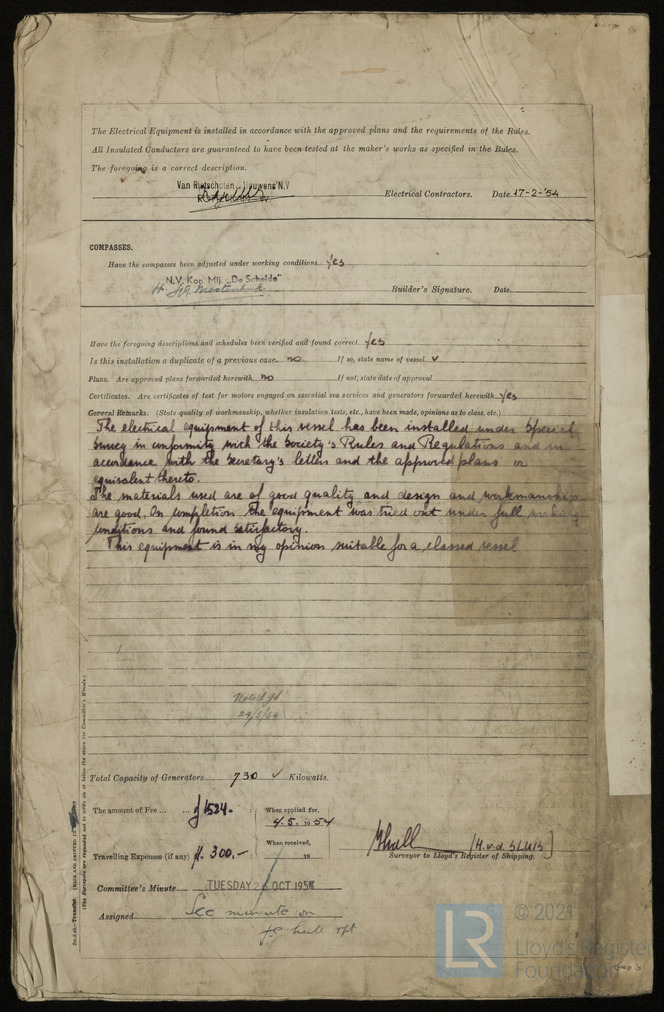 The Electrical Equipment is installed in accordance with the approved plans and the requirements of the Rules.
All Insulated Conductors are guaranteed to have been tested at the maker's works as specified in the Rules.
The foregoing is a correct description.
Van Rietschoten Houwens N.V
Electrical Contractors. Date 17-2-'54
COMPASSES.
Have the compasses been adjusted under working conditions yes
N.V. Kon. Mij. "De Schelde"
Builder's Signature. Date
Have the foregoing descriptions and schedules been verified and found correct yes
Is this installation a duplicate of a previous case no If so, state name of vessel v
Plans. Are approved plans forwarded herewith no If not, state date of approval
Certificates. Are certificates of test for motors engaged on essential sea services and generators forwarded herewith yes
General Remarks. (State quality of workmanship, whether insulation tests, etc., have been made, opinions as to class, etc.)
The electrical equipment of this vessel has been installed under Special
Survey in conformity with the Society's Rules and Regulations and in
accordance with the Secretary's letters and the approved plans or
equivalent thereto.
The materials used are of good quality and design and workmanship
are good. On completion the equipment was tried out under full working
conditions and found satisfactory.
This equipment is in my opinion suitable for a classed vessel
Noted
29/5/54
Total Capacity of Generators 730 ✓ Kilowatts.
The amount of Fee ... ... f 1524.- When applied for,
4.5. 1954
When received,
Travelling Expenses (if any) fl. 300.- 19
[H.v.d. SLUIS]
Surveyor to Lloyd's Register of Shipping.
Committee's Minute TUESDAY 26 OCT 1954
Assigned See minute on
(The Surveyors are requested not to write on or below the space for Committee's Minute.)
© 2021
LR
Lloyd's Register
Foundation